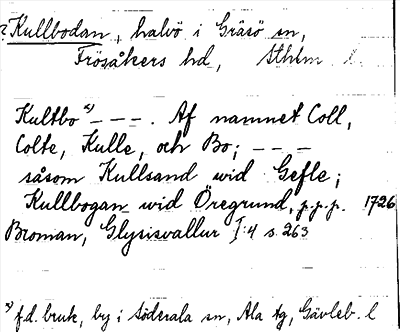 ? Kullbodan, halvö i Gräsö sn,
Frösåkers hd, Sthlm l.
Kultbo x) – – –. Af namnet Coll,
Colte, Kulle, och Bo; – – –
såsom Kullsand wid Gefle;
Kullbogan wid Öregrund, p.p.p. 1726
Broman, Glysisvallur I:4 s. 263
x) f.d. bruk, by i Söderala sn, Ala tg, Gävleb. l